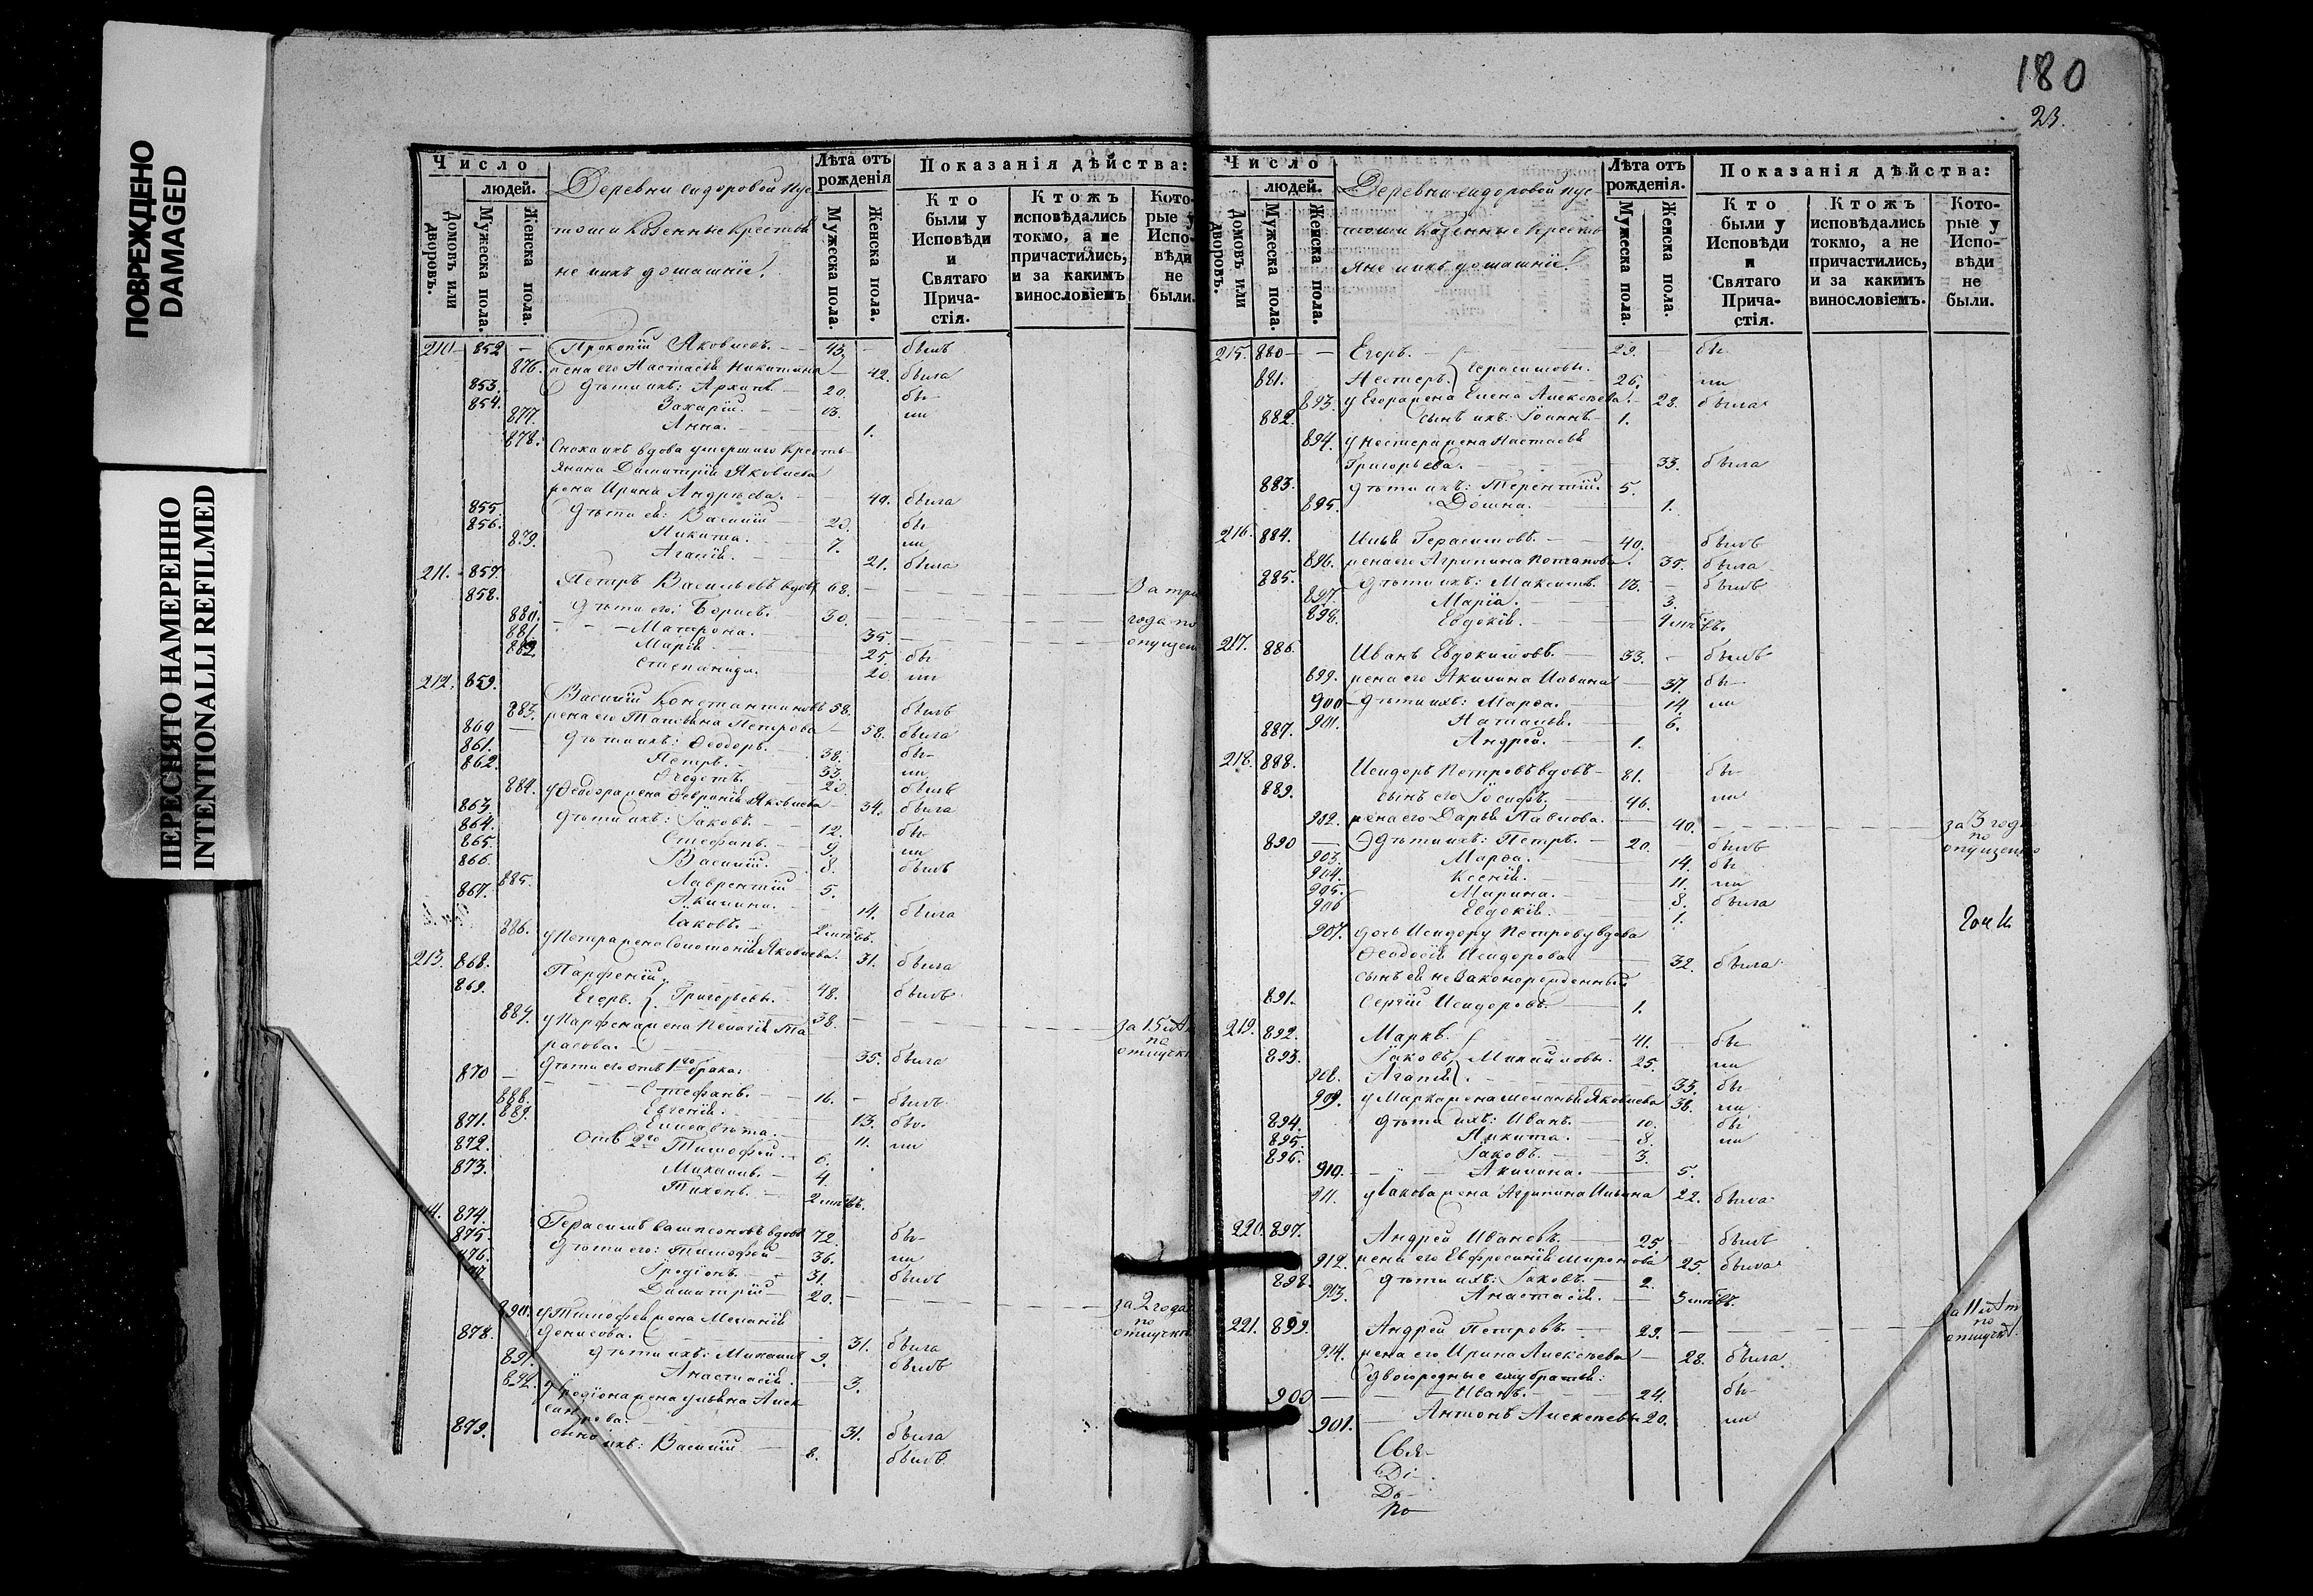 180
23.
ПОВРЕЖДЕНО
DAMAGED
ПЕРЕСНЯТО НАМЕРЕННО
INTENTIONALLI REFILMED
Число
людей.
Домовъ или дворовъ.
Мужеска пола.
Женска пола.
Деревни Сидоровой Пус
тоши Казенные Крестья
не и ихъ домашніе.
Лѣта отъ рожденія
Мужеска пола.
Женска пола.
Показанія дѣйства:
Кто были у Исповѣди и Святаго Причастія.
Ктожъ исповѣдались токмо, а не причастились, и за какимъ винословіемъ
Которые у Исповѣди не были.
210 852 — Прокопій Яковлевъ. — 43. — былъ
876. жена его Настасья Никитина — 42. была
853. Дѣти ихъ: Архипъ — 20. бы-
854. Захарій. — 13. ли
877. Анна. — 1.
878. Сноха ихъ вдова умершаго Кресть
янина Димитрія Яковлева
жена Ирина Андрѣева. — 40. была
855. Дѣти ея: Василій — 20. бы
856. Никита. — 7. ли
879. Агапія. — 21. была
211. 857. Петръ Васильевъ вдовъ 68. — За три
858. Дѣти его: Борисъ. — 30. года по
880. Матрона. — 35 — опущен
881. Марія. — 25. бы
882. Степанида. — 20 ли
212. 859. Василій Константиновъ 58. былъ
883. жена его Татьяна Петрова — 58. была
860 — Дѣти ихъ: Ѳеодоръ. — 38. бы-
861. Петръ. — 33. ли
862. 20. былъ
884. у Ѳеодора жена Февронія Яковлева 34. была
863 Дѣти ихъ: Іаковъ. — 12. бы-
864. Стефанъ. — 9. ли
865. Василій. — 8. былъ
866. Лаврентій — 5.
885. Акилина. — 14. была
867. Іаковъ. — 2 мѣ
886. у Петра жена Соломонія Яковлева. 31. была
213. 868. Парфеній — 48. былъ
869. Егоръ. } Григорьевы. — 38. — за 15 лѣтъ по отпуску
887. у Парфена жена Пелагія Та
расова. — 35. была
Дѣти его отъ 1го брака:
870 — Стефанъ. — 16. — былъ
888. Евгенія. — 13. бы-
889. Елисавета. — 11. ли
871. отъ 2го Тимофей. — 6.
872. Михаилъ. — 4.
873. Тихонъ. — 2 мѣ
874. Герасимъ Сампсоновъ вдовъ 72. бы-
875. Дѣти его: Тимофей 36. ли
Іродіонъ. — 31. былъ
Димитрій — 20. — за 2 года по отпуску
890. у Тимофея жена Меланія
Денисова. — 31. была
878. Дѣти ихъ: Михаилъ 9. былъ
891. Анастасія. — 3.
892. у Іродіона жена Ульяна Алек
сандрова. — 31. была
879. сынъ ихъ: Василій — 8. былъ
Число
людей.
Домовъ или дворовъ.
Мужеска пола.
Женска пола.
Деревни Сидоровой Пус
тоши Казенные Кресть
яне и ихъ домашніе.
Лѣта отъ рожденія.
Мужеска пола.
Женска пола.
Показанія дѣйства:
Кто были у Исповѣди и Святаго Причастія.
Ктожъ исповѣдались токмо, а не причастились, и за какимъ винословіемъ.
Которые у Исповѣди не были.
215. 880 — Егоръ. — 29. бы-
881. Нестеръ. } Герасимовы. 26. ли
893. у Егора жена Елена Алексѣева. — 28. была
882. сынъ ихъ: Іоаннъ — 1.
894. у Нестера жена Настасья
Григорьева. — 33. была
883. Дѣти ихъ: Терентій. 5.
895. Домна. — 1.
216. 884. Илья Герасимовъ. — 40. былъ
896. жена его Агрипина Потапова. 35. была
885. Дѣти ихъ: Максимъ. 13. — былъ
897. Марія. — 3.
898. Евдокія. — 9 мѣ
217. 886. Иванъ Евдокимовъ. — 33. — былъ
899. жена его Акилина Иванова — 37. бы-
900 — Дѣти ихъ: Марѳа. — 14. ли
901. Наталья. — 6.
887. Андрей. — 1.
218. 888. Исидоръ Петровъ вдовъ — 81. бы-
889. сынъ его Іосифъ. — 46. ли
902. жена его Дарья Павлова. — 40. — за 3 года по опущенію
890 — Дѣти ихъ: Петръ. — 20. — былъ
903. Марѳа. — 14. бы
904. Ксенія. — 11. ли
905. Марина. — 8. была
906 Евдокія. — 1.
907. дочь Исидору Петрову вдова
Ѳеодосія Исидорова 32. была
сынъ ея незаконорожденный
891. Сергій Исидоровъ. — 1.
219. 892. Маркъ. — 41. — бы-
893. Іаковъ } Михайловы. 25. ли
908. Агапія — 35. бы-
909. у Марка жена Меланья Яковлева 38. ли
894. Дѣти ихъ: Иванъ. — 10. бы
895. Никита. — 8. ли
896. Іаковъ. — 3.
910. Акилина. — 5.
911. у Іакова жена Агрипина Ильина 22. была
220 897. Андрей Ивановъ. — 25. былъ
912. жена его Евфросинія Миронова 25. была
898 Дѣти ихъ: Іаковъ. — 2.
913. Анастасія. — 5 мѣ
221. 899. Андрей Петровъ. — 29. — за 11 лѣтъ по отпуску
914. жена его Ирина Алексѣева — 28. была
Двоюродные ему братья:
900 — Иванъ. — 24. бы-
901. — Антонъ Алексѣевы 20. ли
Свя-
Ді-
До-
по-